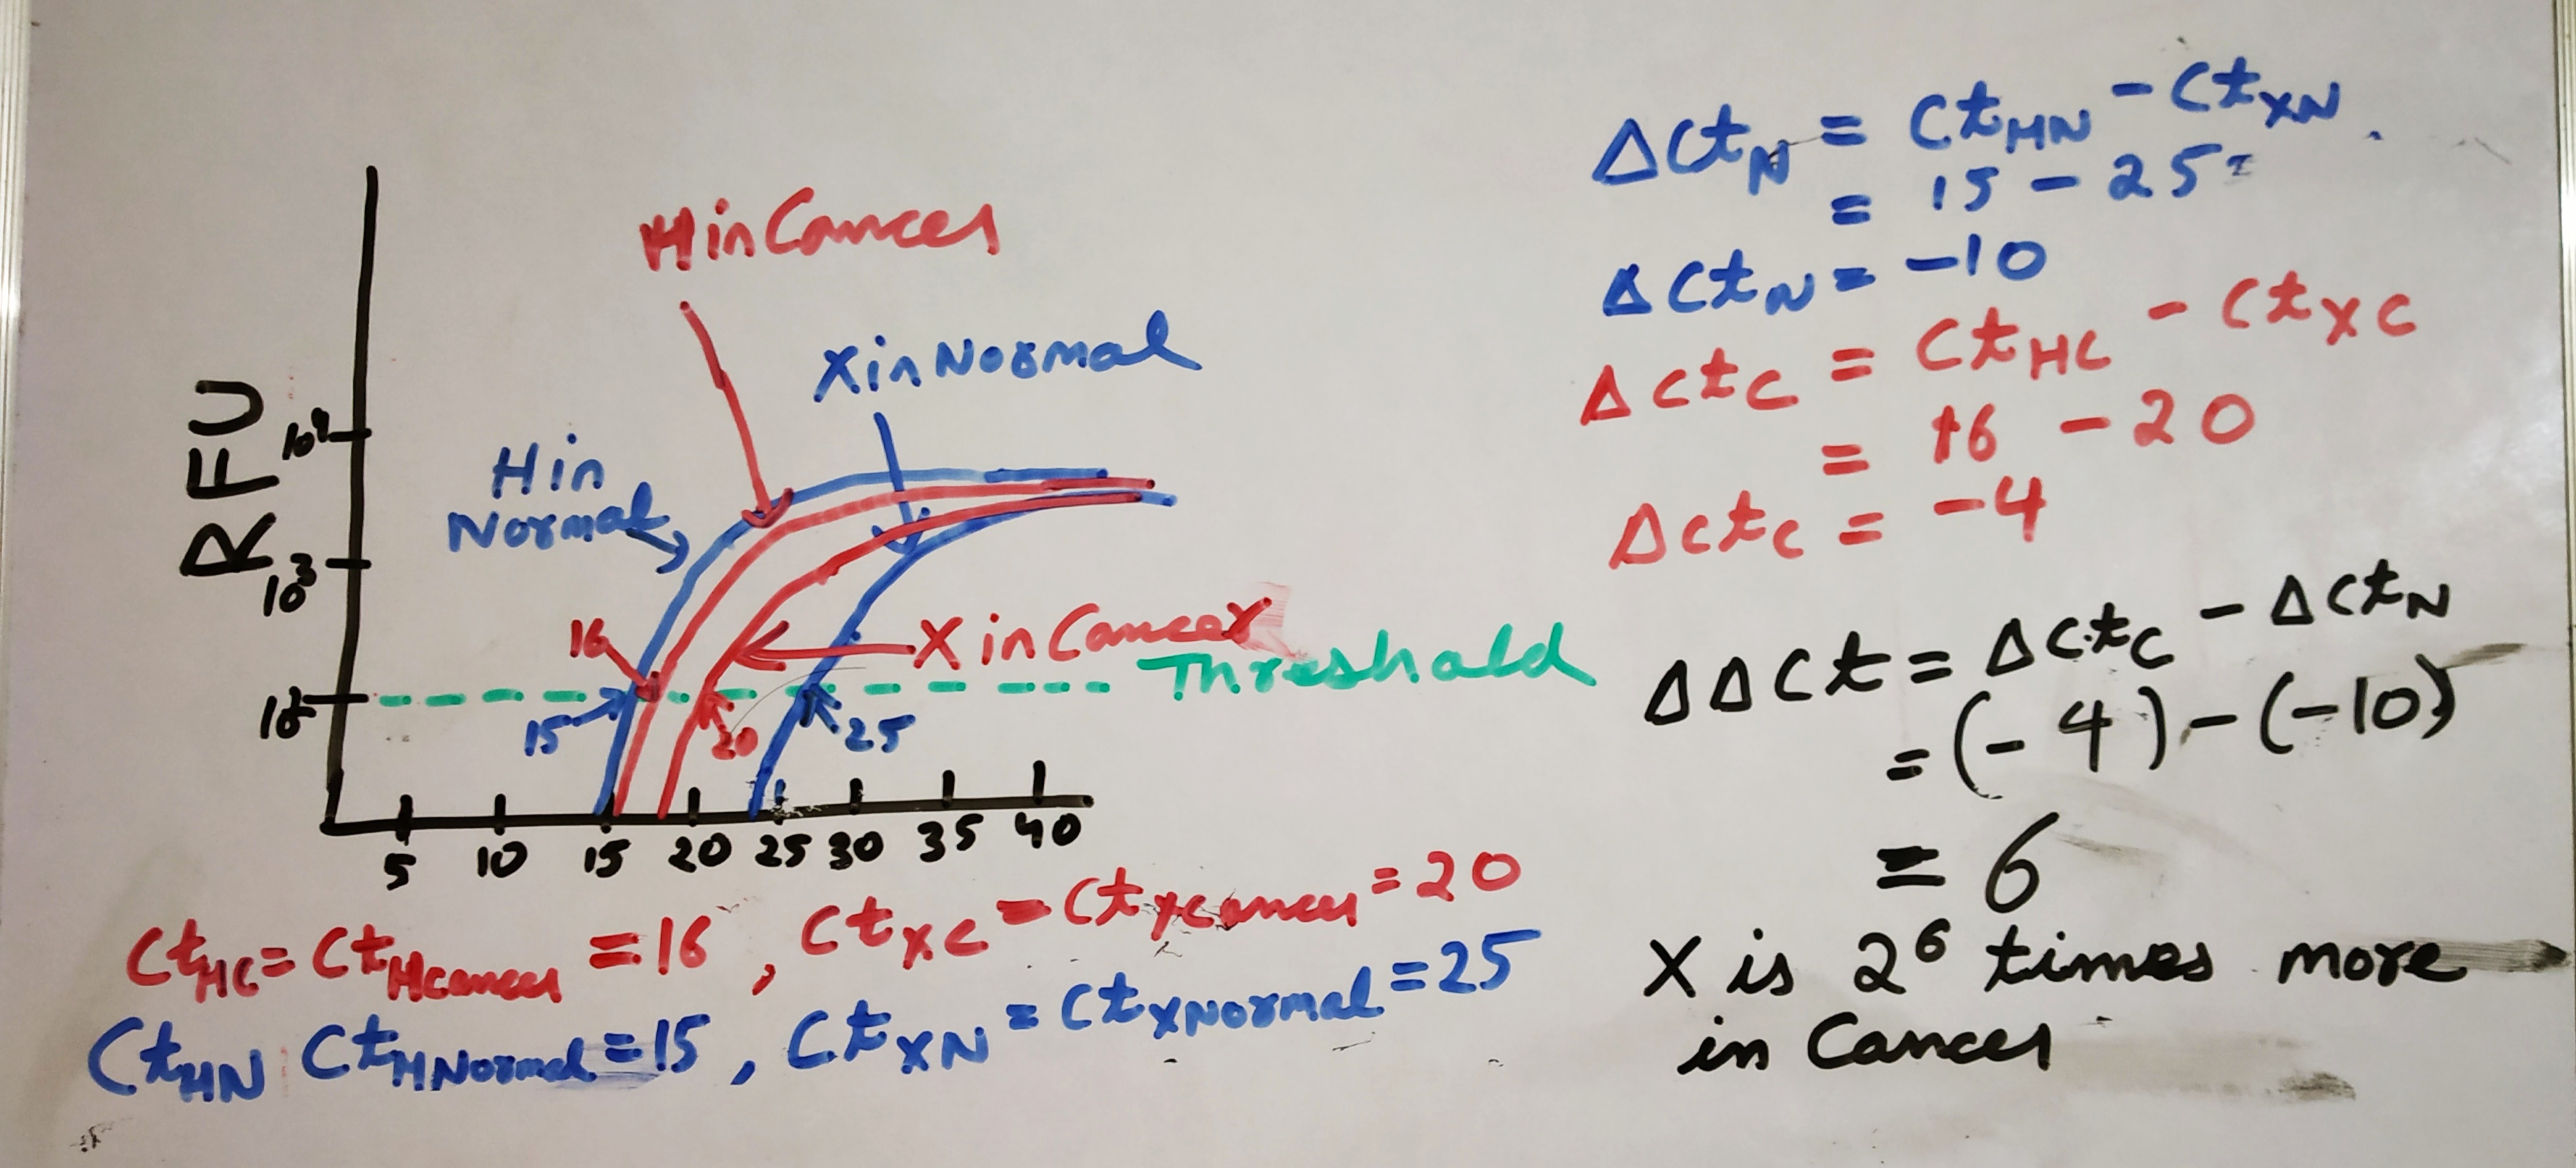 H in Cancer
X in Normal
H in
Normal
RFU
10⁴
10³
10²
16
X in Cancer
Threshold
15
20
25
5 10 15 20 25 30 35 40
CtHC = CtHcancer = 16 , CtXC = CtXcancer = 20
CtHN CtHNormal = 15 , CtXN = CtXNormal = 25
ΔCtN = CtHN - CtXN
= 15 - 25 =
ΔCtN = -10
ΔCtC = CtHC - CtXC
= 16 - 20
ΔCtC = -4
ΔΔCt = ΔCtC - ΔCtN
= (-4) - (-10)
= 6
X is 2⁶ times more
in Cancer